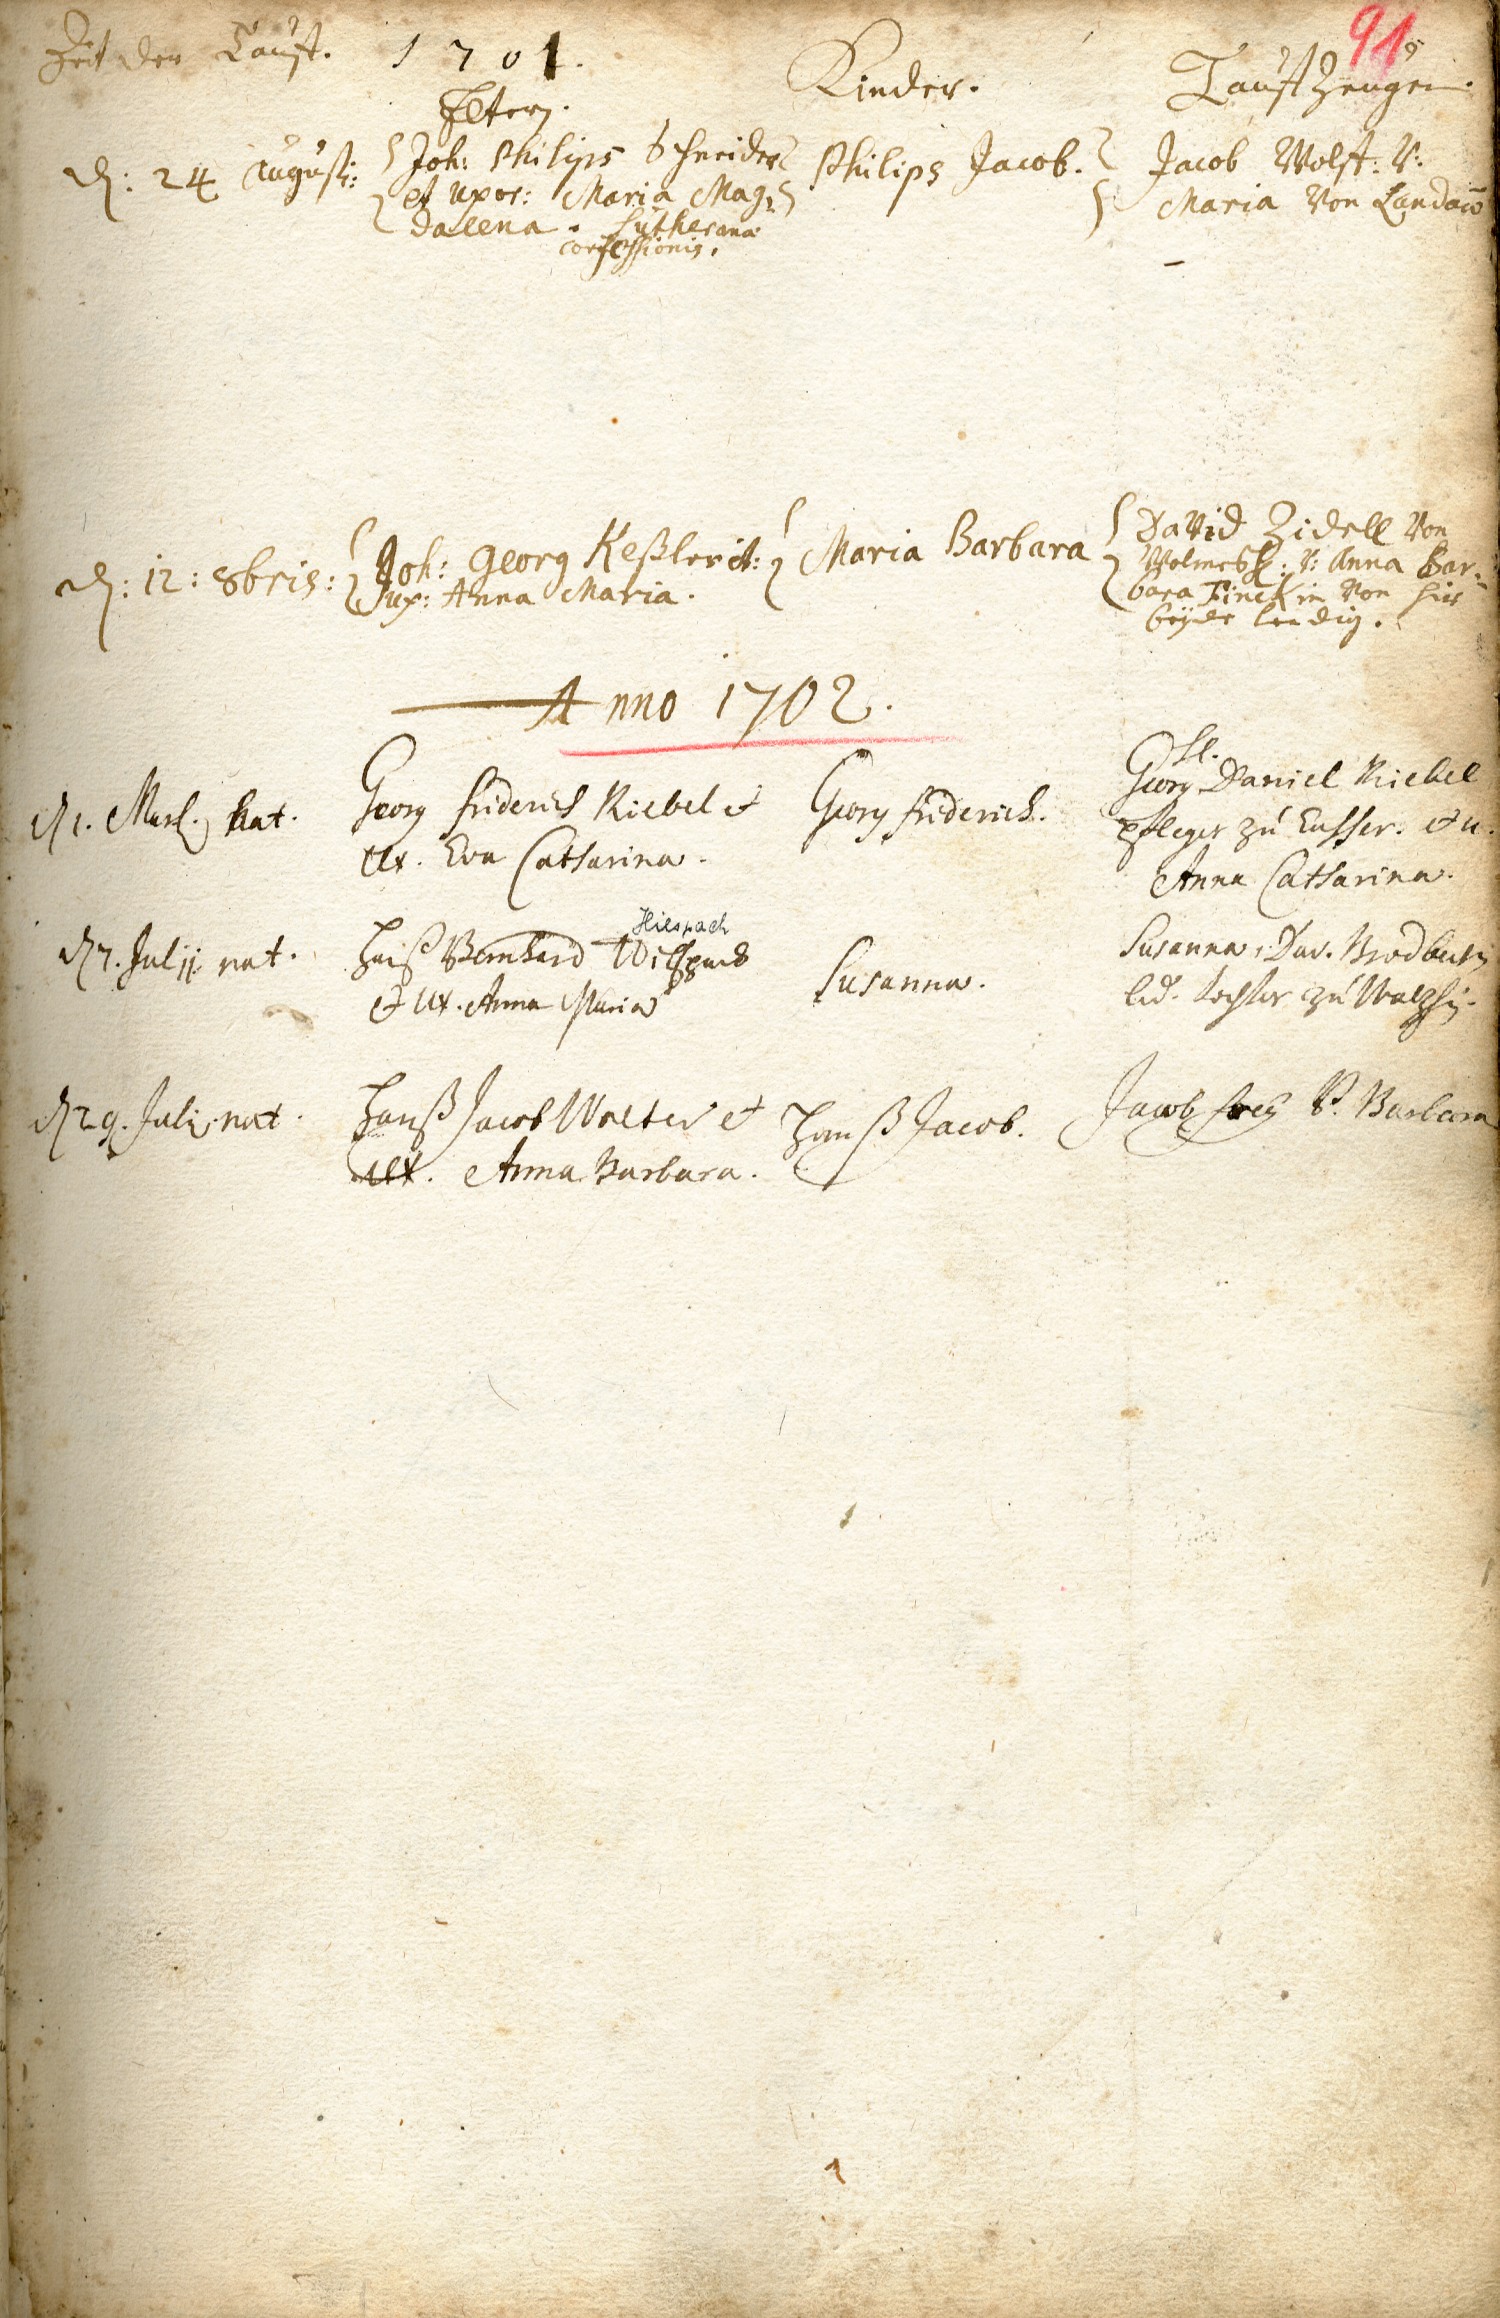 91
Zeit der Tauff. 1701.
Eltern.
Kinder.
Tauff Zeugen.
d: 24 Augusti:
Joh: Philips Schneider
et uxor: Maria Mag-
dalena. Lutherana
confessionis.
Philips Jacob.
Jacob Wolff: V:
Maria Von Landaw
d: 12: 8bris:
Joh: Georg Keßler et:
ux: Anna Maria.
Maria Barbara
David Zidell Von
V: Anna Bar-
bara Finckin Von hier
beyde leedig.
Anno 1702.
d 1. Mart. nat.
Georg Friderich Riebel et
Ux. Eva Catharina.
Georg Friderich.
H.
Georg Daniel Riebel
Pfleger zu Eusser. et u.
Anna Catharina.
d 7. Julij nat.
Hilspach
Hanß Bernhard
et Ux. Anna Maria
Susanna.
Susanna, Dav.
led. tochter zu
d 29. Juli nat.
Hanß Jacob Walter et
Ux. Anna Barbara.
Hanß Jacob.
Jacob Frey V. Barbara